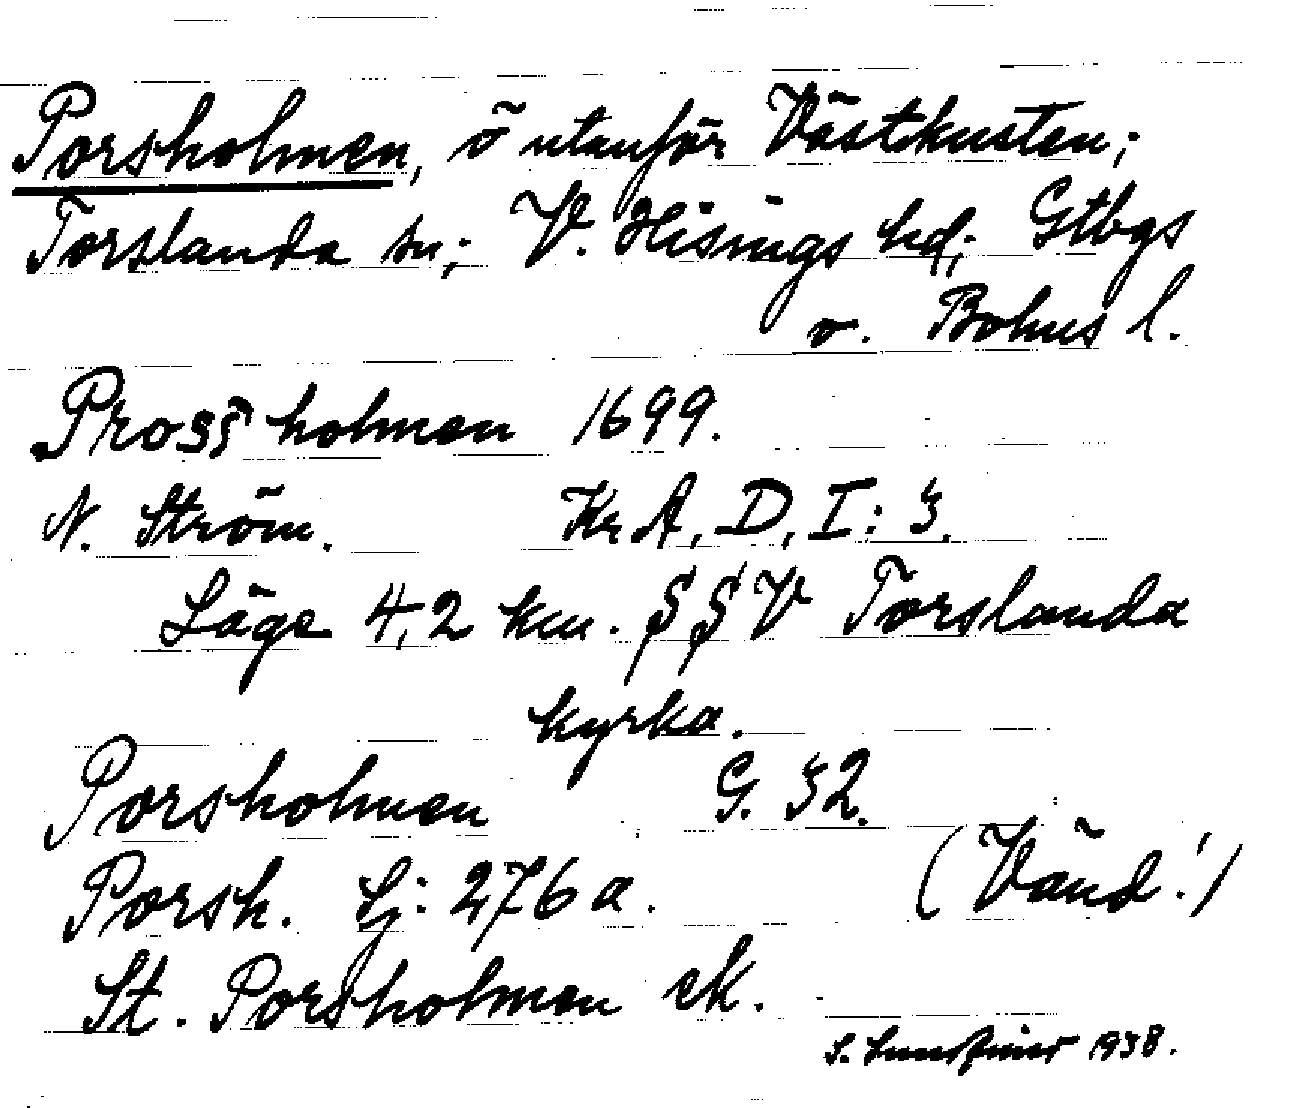 Porsholmen, ö utanför Västkusten;
Torslanda sn; V. Hisings hd; Gtbgs
o. Bohus l.
Prossholmen 1699.
N. Ström. Kr A, D, I: 3.
Läge 4,2 km. SSV Torslanda
kyrka.
Porsholmen G. 32.
Porsh. Lj: 276 a. (Vänd!)
St. Porsholmen ek.
1938.